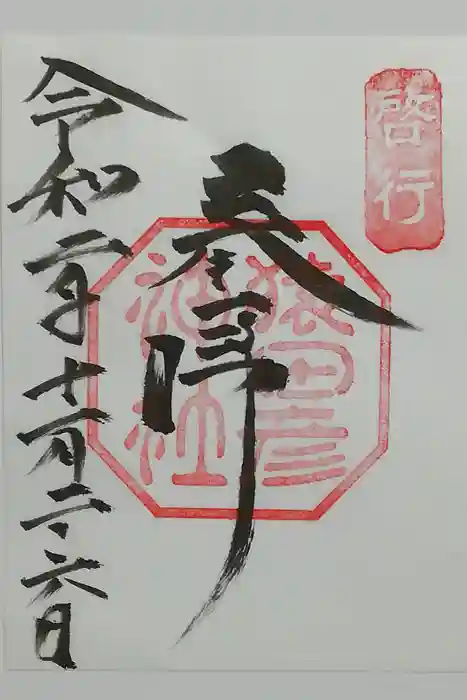 啓行
奉拝
猿田彦
神社
令和二年十一月二六日